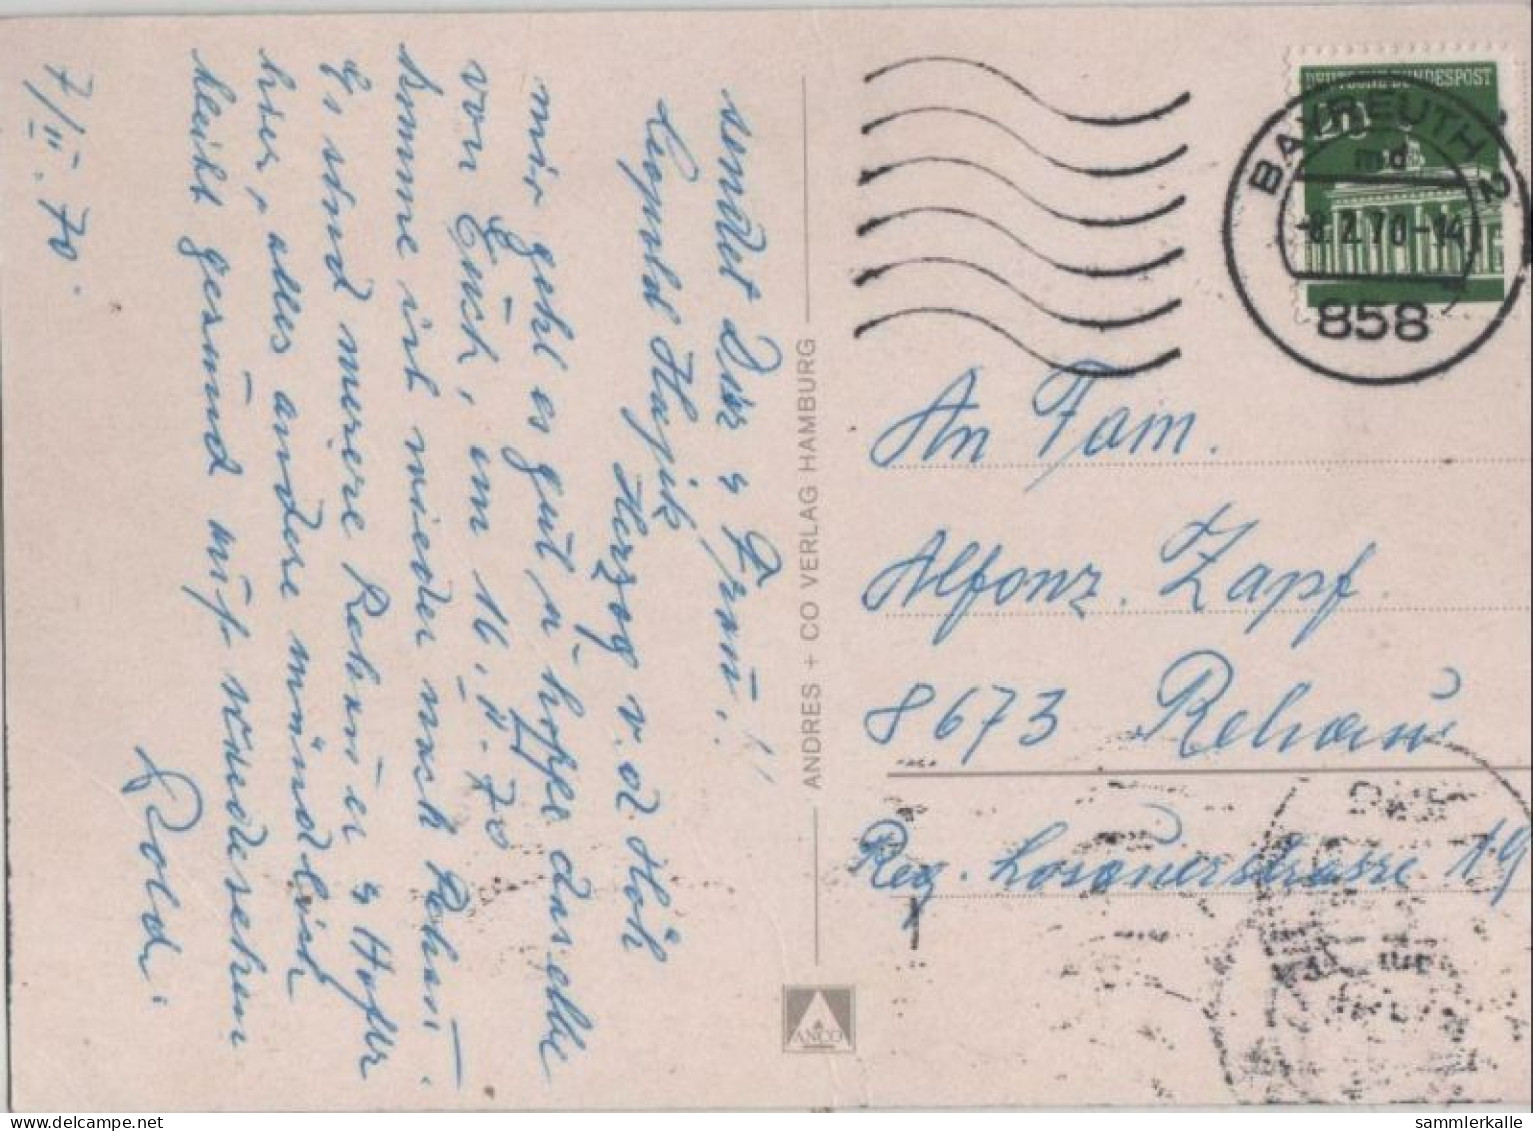 sendet Dir u Frau!
Leopold Hajik
Herzog v. d. Höh
mir geht es gut u hoffe dasselbe
von Euch, am 16.II.70
komme ich wieder nach Rehau.
Es sind mehrere Rehauer u Hofer
hier, alles andere mündlich
bleibt gesund auf wiedersehen
Poldi
7/II.70.
ANDRES + CO VERLAG HAMBURG
ANCO
DEUTSCHE BUNDESPOST
20
BAYREUTH 2
md
-8.2.70-14
858
An Fam.
Alfonz. Zapf.
8673 Rehau
Reg. Losauerstrasse 19
sammlerkalle